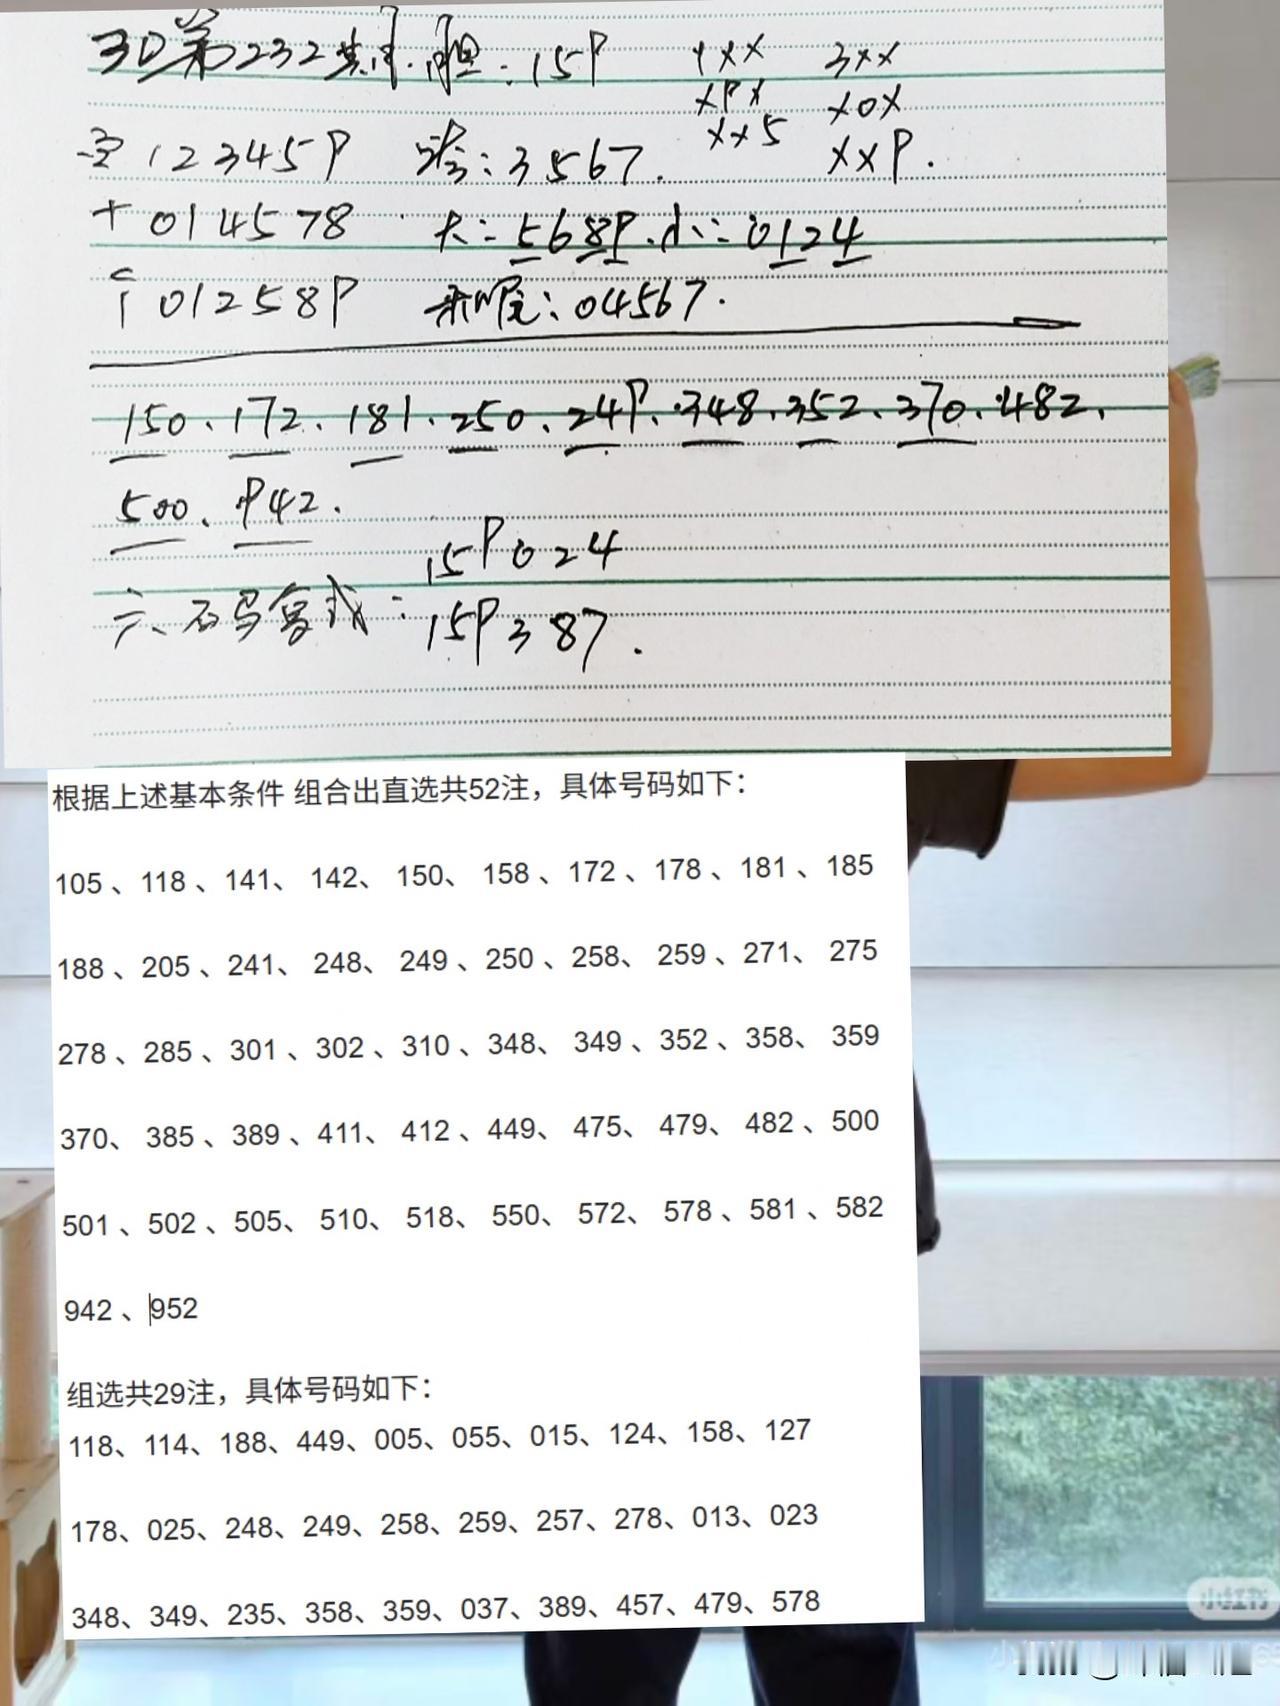 3D第232期. 胆: 15P 1XX 3XX
XPX X0X
XX5 XXP.
百 12345P 跨: 3567.
十 014578 大: 568P. 小: 0124
个 01258P 和尾: 04567.
150、172、181、250、24P、348、352、370、482、
500、P42.
15P024
六、石马复式: 15P387.
根据上述基本条件 组合出直选共52注，具体号码如下：
105 、118 、141、 142、 150、 158 、172 、178 、181 、185
188 、205 、241、 248、 249 、250 、258、 259 、271、 275
278 、285 、301 、302 、310 、348、 349 、352 、358、 359
370、 385 、389 、411、 412 、449、 475、 479、 482 、500
501 、502 、505、 510、 518、 550、 572、 578 、581 、582
942 、952
组选共29注，具体号码如下：
118、114、188、449、005、055、015、124、158、127
178、025、248、249、258、259、257、278、013、023
348、349、235、358、359、037、389、457、479、578
小红书